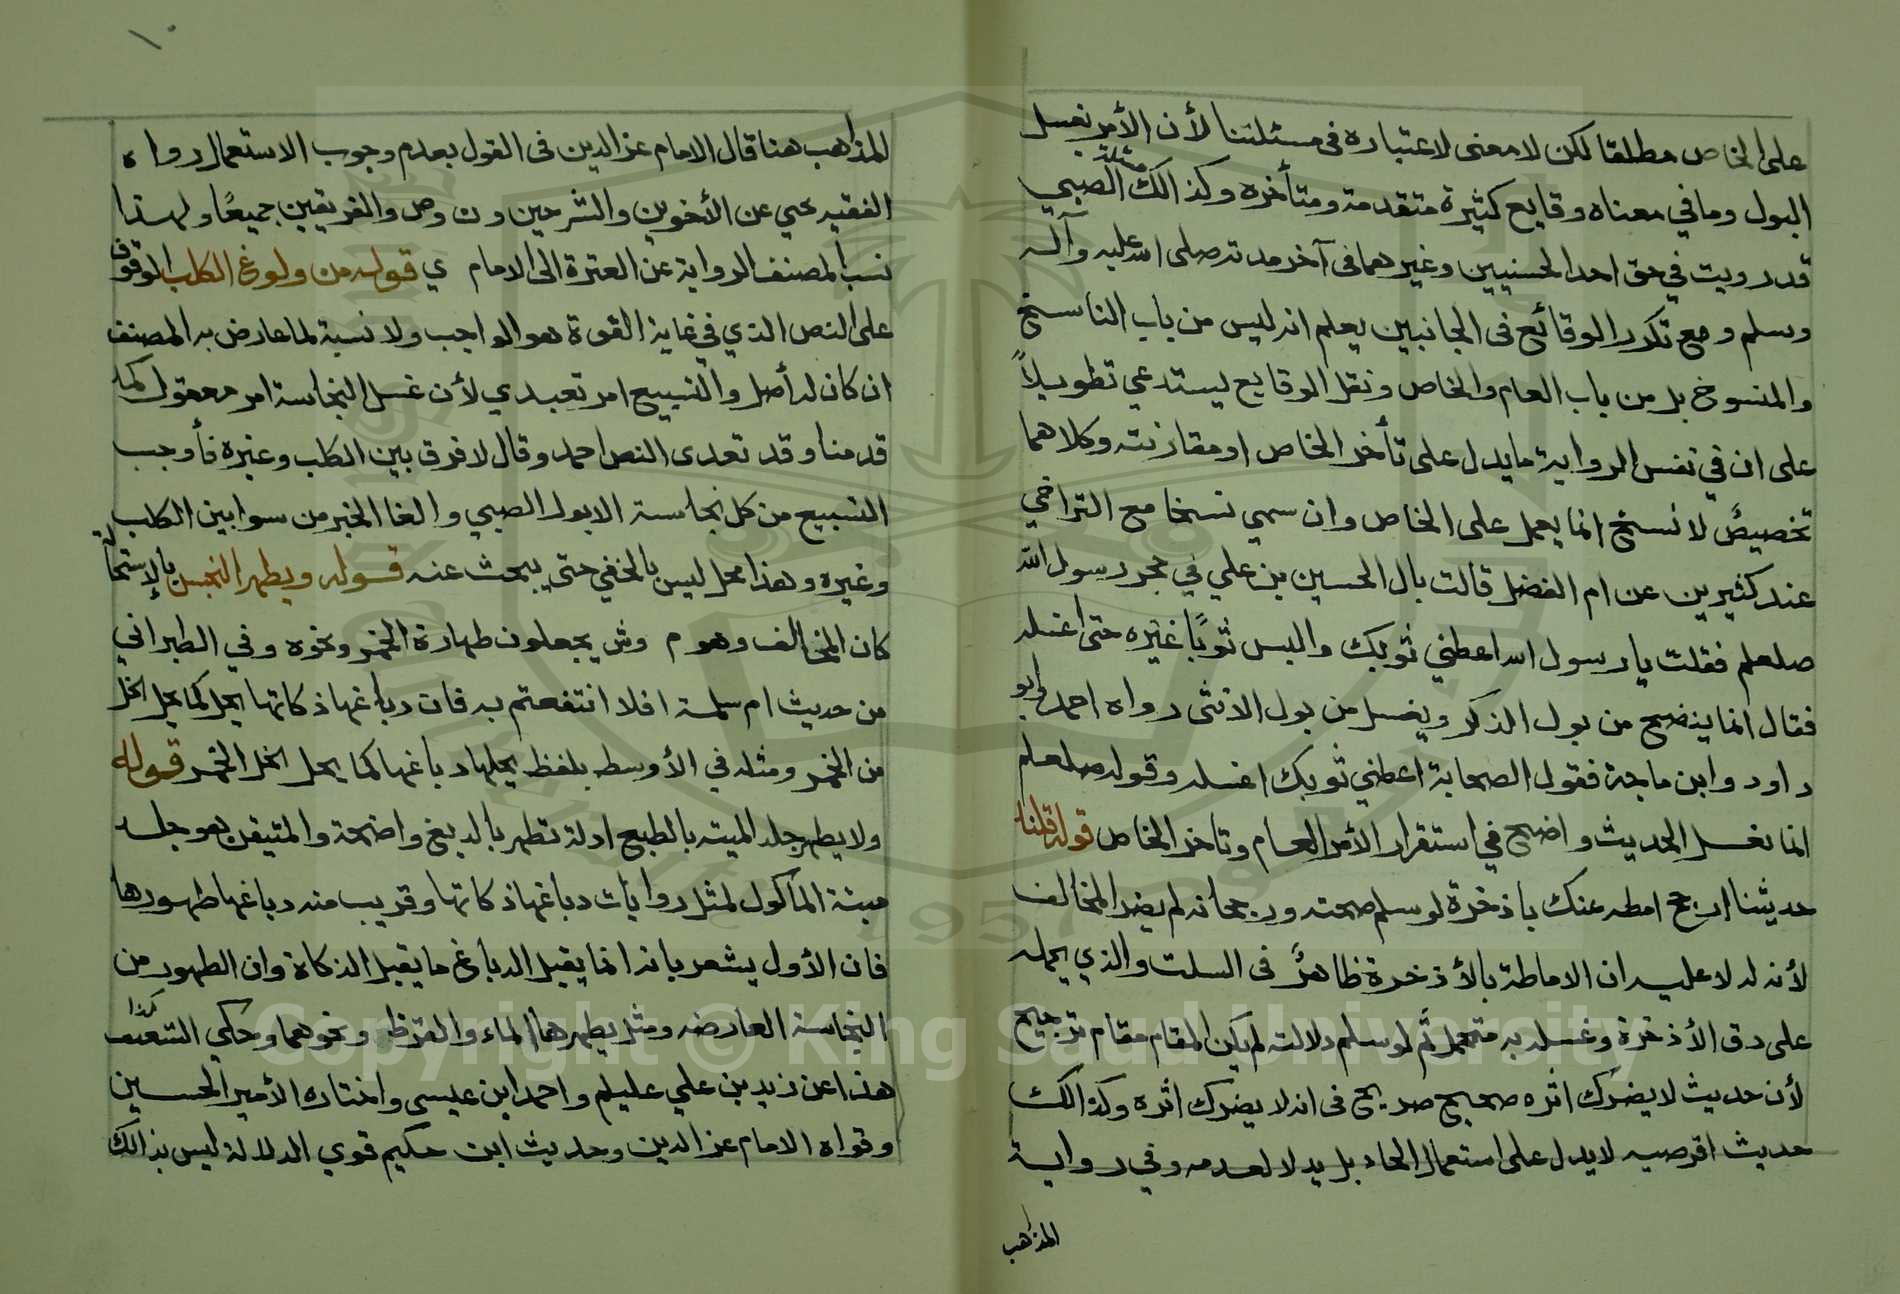 على الخاص مطلقا لكن لا معنى لاعتباره في مسئلتنا لأن الأمر بغسل
البول وما في معناه وقايع كثيرة متقدمة ومتأخره وكذالك مسئلة الصبي
قد رويت في حق احد الحسنيين وغيرهما في آخر مدته صلى الله عليه وآله
وسلم ومع تكرر الوقائع في الجانبين يعلم انه ليس من باب الناسخ
والمنسوخ بل من باب العام والخاص ونقل الوقايع يستدعي تطويلاً
على ان في نفس الرواية ما يدل على تأخر الخاص او مقارنته وكلاهما
تخصيصٌ لا نسخ انما يعمل على الخاص وان سمي نسخا مع التراخي
عند كثيرين عن ام الفضل قالت بال الحسين بن علي في حجر رسول الله
صلعلم فقلت يا رسول الله اعطني ثوبك والبس ثوبًا غيره حتى اغسله
فقال انما ينضح من بول الذكر ويغسل من بول الانثى رواه احمد وابو
داود وابن ماجة فقول الصحابة اعطني ثوبك اغسله وقوله صلعلم
انما يغسل الحديث واضح في استقرار الأمر العام وتاخر الخاص قوله قلنا
حديثنا ارجح امطه عنك باذخرة لو سلم صحته ورجحانه لم يضر المخالف
لأنه له لا عليه ان الاماطة بالأذخرة ظاهرٌ في السلت والذي يحمله
على دق الأذخرة وغسله به متمحل ثم لو سلم دلالته لم يكن المقام مقام ترجيح
لأن حديث لا يضرك اثره صحيح صريح في انه لا يضرك اثره وكذالك
حديث اقرصيه لا يدل على استعمال الحاد بل يدلا لعدمه وفي رواية
المذاهب
١٠
المذاهب هنا قال الامام عز الدين في القول بعدم وجوب الاستعمال رواه
الفقيه يحيي عن الأخوين والشرحين ون وص والفريقين جميعًا ولهذا
نسب المصنف الرواية عن العترة الى الامام ي قوله من ولوغ الكلب الوقوف
على النص الذي في غاية القوة هو الواجب ولا نسبة لما عارض به المصنف
ان كان له أصل والتسبيع امر تعبدي لأن غسل النجاسة امر معقول كما
قدمنا وقد تعدى النص احمد وقال لا فرق بين الكلب وغيره فأوجب
التسبيع من كل نجاسة الا بول الصبي والغا الخبر من سوا بين الكلب
وغيره وهذا محل ليس بالخفي حتى يبحث عنه قوله ويطهر النجس بالإستحالة
كان المخالف وهو م وش يجعلون طهارة الخمر ونحوه وفي الطبراني
من حديث ام سلمة افلا انتفعتم به فان دباغها ذكاتها يحل كما يحل الخل
من الخمر ومثله في الأوسط بلفظ يحلها دباغها كما يحل الخل الخمر قوله
ولا يطهر جلد الميته بالطبع ادلة تطهر بالدبغ واضحة والمتيقن هو جلد
ميتة المأكول لمثل روايات دباغها ذكاتها وقريب منه دباغها طهورها
فان الأول يشعر بانه انما يقبل الدباغ ما يقبل الذكاة وان الطهور من
النجاسة العارضه ومثل يطهرها الماء والقرظ ونحوهما وحكي التتعيف كذا
هذا عن زيد بن علي عليلم واحمد ابن عيسى واختاره الأمير الحسين
وقواه الامام عز الدين وحديث ابن حكيم قوي الدلالة ليس بذالك
Copyright © King Saud University
1957